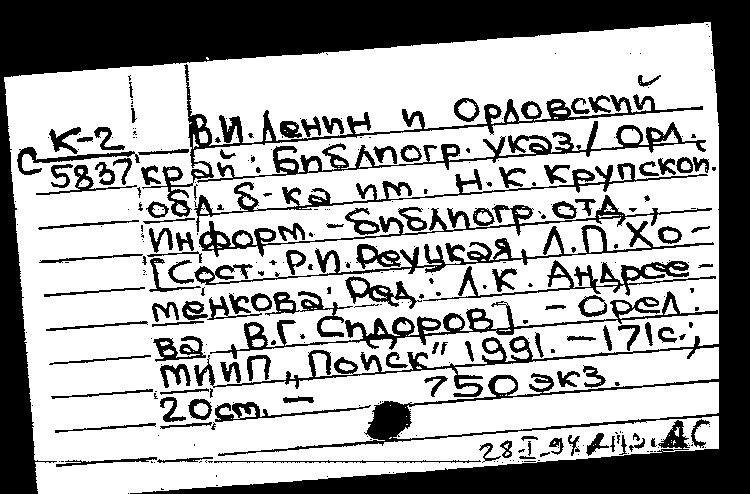 В.И.Ленин и Орловский
С К-2
5837
край: Библиогр. указ./ Орл.
обл. б-ка им. Н.К.Крупской.
Информ.-библиогр. отд.;
[Сост.: Р.И.Реуцкая, Л.П.Хо-
менкова; Ред.: Л.К. Андрее-
ва, В.Г. Сидоров]. - Орел:
МИИП „Поиск", 1991. - 171с.;
20см. - 750 экз.
28-I-94 АС